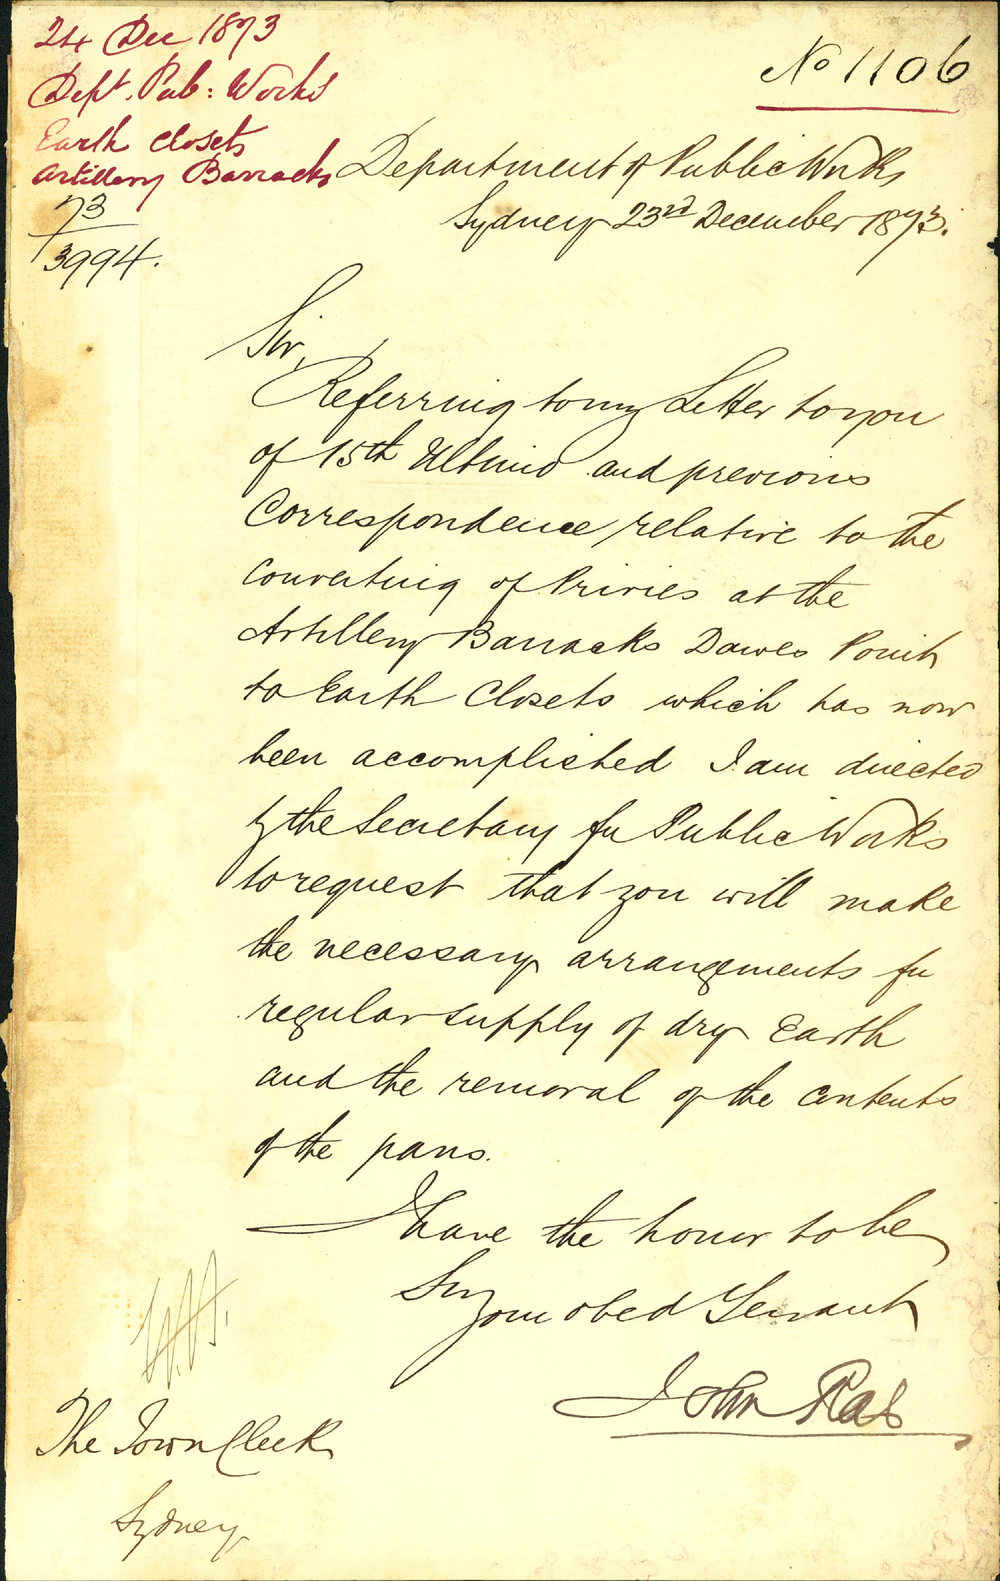 24 Dec 1873
Dept. Pub: Works
Earth Closets
Artillery Barracks
73
3994.
No 1106
Department of Public Works
Sydney 23rd December 1873.
Sir,
Referring to my Letter to you
of 15th Ultimo and previous
Correspondence relative to the
Converting of Privies at the
Artillery Barracks Dawes Point
to Earth Closets which has now
been accomplished I am directed
by the Secretary for Public Works
to request that you will make
the necessary arrangements for
regular supply of dry Earth
and the removal of the contents
of the pans.
I have the honor to be
Sir
your obed Servant
John Rae
The Town Clerk
Sydney